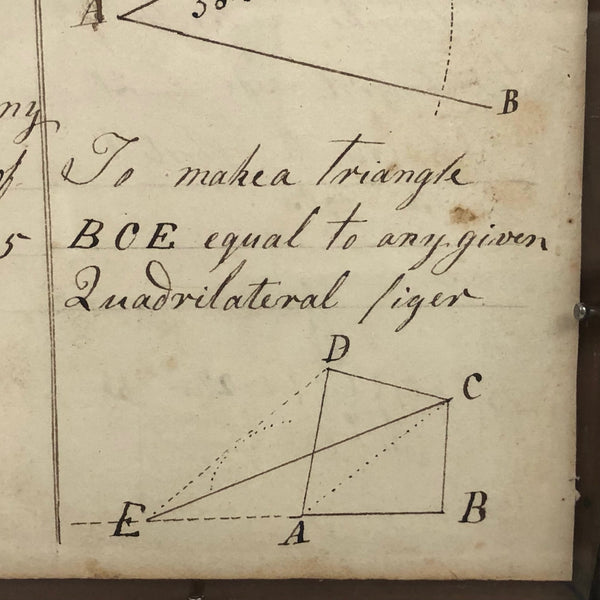 A 38
B
ny
of
5
To make a triangle
BCE equal to any given
Quadrilateral figer
D
C
E A B